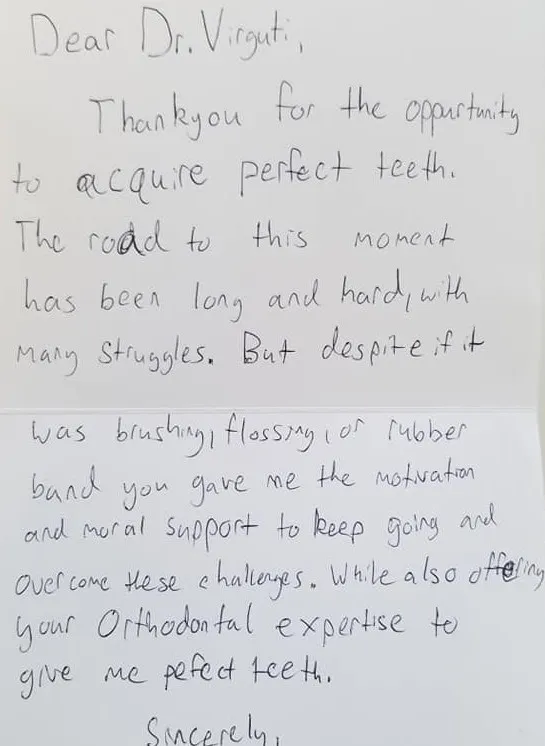 Dear Dr. Virguti,
Thankyou for the oppurtunity
to acquire perfect teeth.
The road to this moment
has been long and hard, with
many struggles. But despite if it
was brushing, flossing, or rubber
band you gave me the motivation
and moral support to keep going and
overcome these challenges. While also offering
your Orthodontal expertise to
give me pefect teeth.
Sincerely,